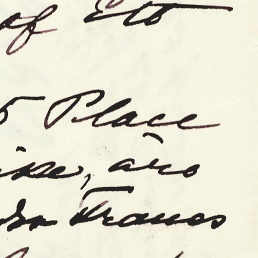 of Etb
5 Place
ike, are
Frances